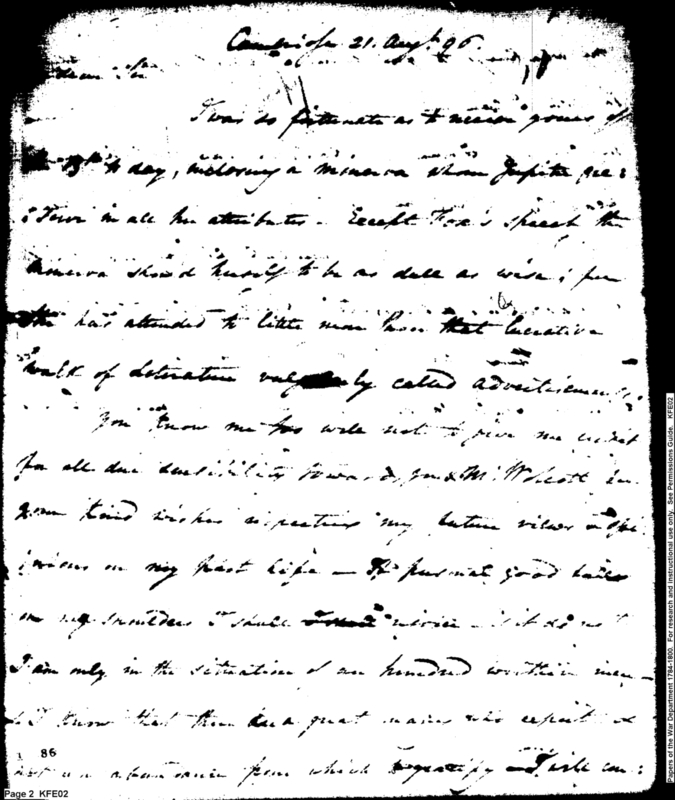 Cambridge 21. Augt. 96.
dear Sir
I was so fortunate as to receive yours of
the 13th to day, inclosing a Minerva whom Jupiter pre:
:serve in all her attributes - Except Fox's speech the
Minerva shewd herself to be as dull as wise; for
She has attended to little more than that lucrative
walk of Literature vulgarly called Advertisements.
You know me too well not to give me credit
for all due sensibility towards you & Mr. Wolcott in
your kind wishes respecting my future views & opi
:nions on my past life - If fortune, good
on my shoulders I shall rejoice - if it do not
I am only in the situation of an hundred worthier men -
& I know that there are a great many who expect &
not an abundance from which to gratify - I will con:
1 86
Page 2 KFE02
Papers of the War Department 1784-1800. For research and instructional use only. See Permissions Guide. KFE02